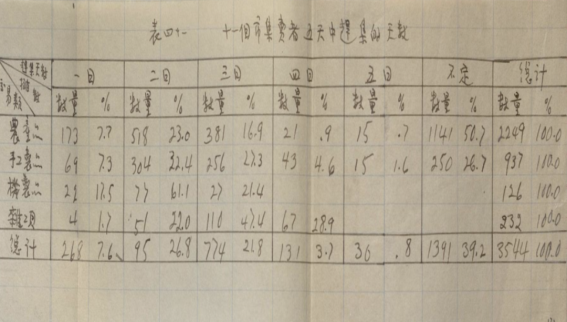 表四十一 十一個市集賣者五天中趕集的天數
趕集天數 一日 二日 三日 四日 五日 不定 總計
數量 % 數量 % 數量 % 數量 % 數量 % 數量 % 數量 %
農產品 173 7.7 518 23.0 381 16.9 21 .9 15 .7 1141 50.7 2249 100.0
手工業品 69 7.3 304 32.4 256 27.3 43 4.6 15 1.6 250 26.7 937 100.0
機製品 22 17.5 77 61.1 27 21.4 126 100.0
雜項 4 1.7 51 22.0 110 47.4 67 28.9 232 100.0
總計 268 7.6 95 26.8 774 21.8 131 3.7 30 .8 1391 39.2 3544 100.0